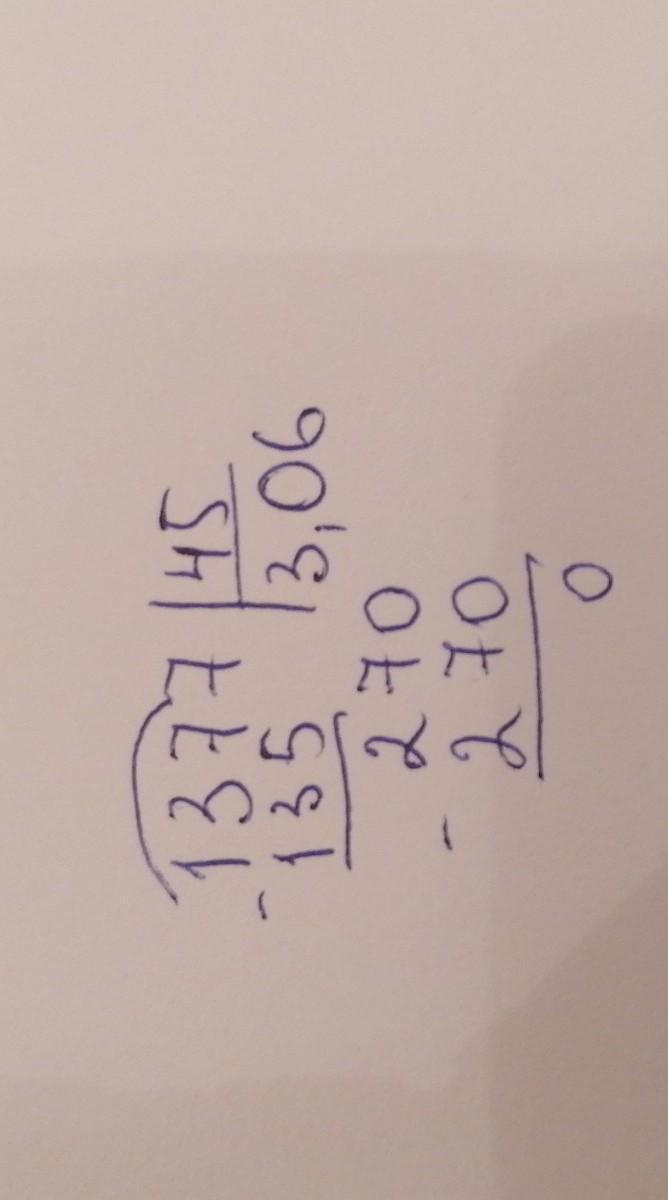 1377 | 45
- 135 | 3,06
270
- 270
0